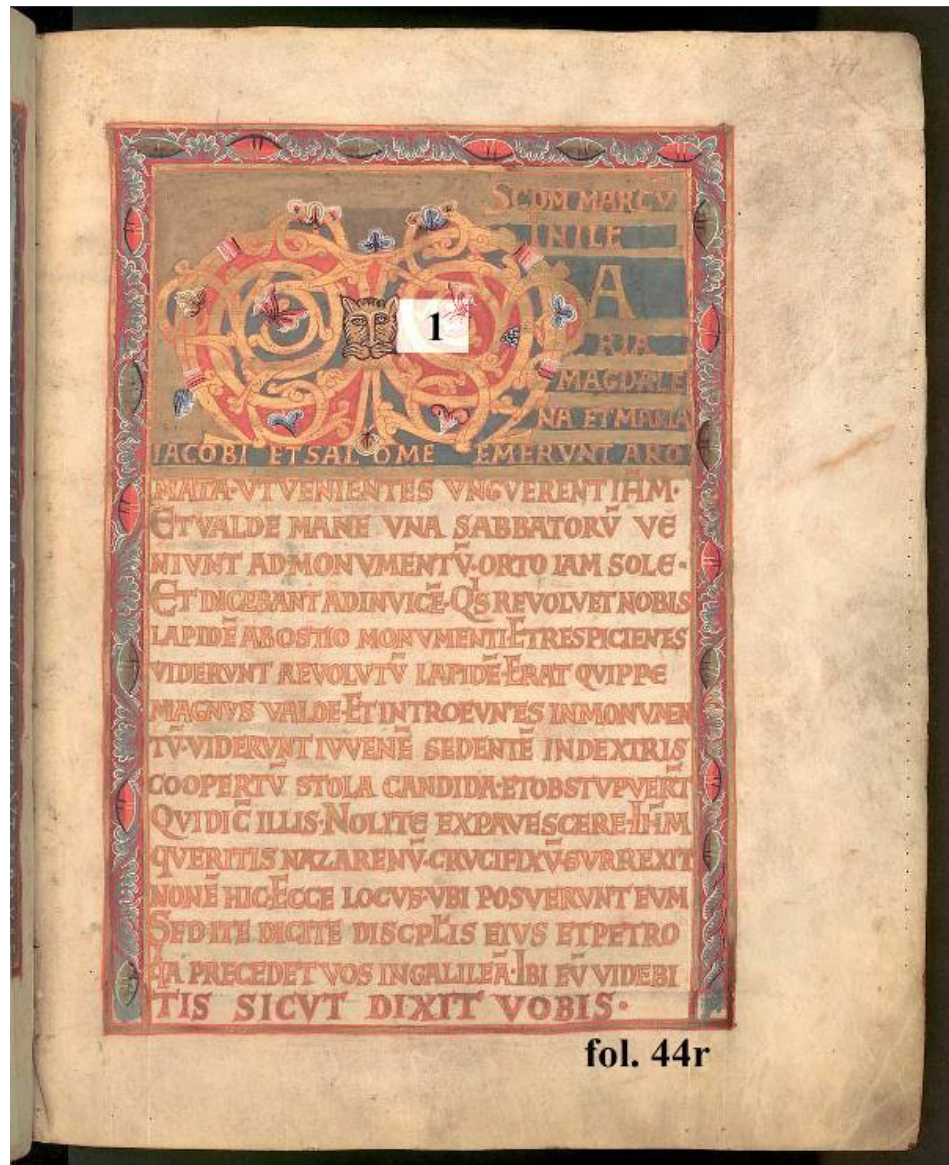 44
SCDM MARCV
INILE
A
RIA
MAGDALE
NA ET MARIA
IACOBI ET SALOME EMERVNT ARO
MATA·VT VENIENTES VNGVERENT IHM·
ET VALDE MANE VNA SABBATORV̄ VE
NIVNT AD MONVMENTV̄·ORTO IAM SOLE·
ET DICEBANT ADINVICĒ·QIS REVOLVET NOBIS
LAPIDĒ AB OSTIO MONVMENTI·ET RESPICIENES
VIDERVNT REVOLVTV̄ LAPIDĒ·ERAT QVIPPE
MAGNVS VALDE·ET INTROEVNTES IN MONVMEN
TV̄·VIDERVNT IVVENĒ SEDENTĒ IN DEXTRIS
COOPERTV̄ STOLA CANDIDA·ET OBSTVPVERT̄
QVI DIC̄ ILLIS·NOLITE EXPAVESCERE·IHM
QVERITIS NAZARENV̄·CRVCIFIXV̄·SVRREXIT
NON Ē HIC·ECCE LOCVS·VBI POSVERVNT EVM
SED ITE DICITE DISCPLIS EIVS ET PETRO
QA PRECEDET VOS IN GALILEĀ·IBI EV̄ VIDEBI
TIS SICVT DIXIT VOBIS·
1
fol. 44r